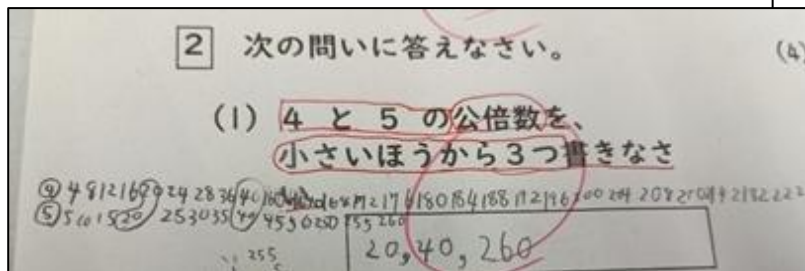 2 次の問いに答えなさい。
(4)
(1) 4 と 5 の公倍数を、
小さいほうから3つ書きなさ
④ 4 8 12 16 20 24 28 36 40 180 184 188 192 196 200 204 208
⑤ 5 10 15 20 25 30 35 40 45 50 250 255 260
255
20, 40, 260